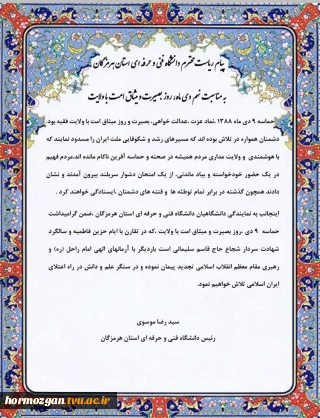 پیام ریاست محترم دانشگاه فنی و حرفه ای استان هرمزگان
به مناسبت نهم دی ماه، روز بصیرت و میثاق امت با ولایت
حماسه ۹ دی ماه ۱۳۸۸ ،نماد عزت ،عدالت خواهی، بصیرت و روز میثاق امت با ولایت فقیه بود.
دشمنان همواره در تلاش بوده اند که مسیرهای رشد و شکوفایی ملت ایران را مسدود نمایند که
با هوشمندی و ولایت مداری مردم همیشه در صحنه و حماسه آفرین ناکام مانده اند،مردم فهیم
در یک حضور خودخواسته و بیاد ماندنی، از یک امتحان دشوار سربلند بیرون آمدند و نشان
دادند همچون گذشته در برابر تمام توطئه ها و فتنه های دشمنان ،ایستادگی خواهند کرد .
اینجانب به نمایندگی دانشگاهیان دانشگاه فنی و حرفه ای استان هرمزگان ،ضمن گرامیداشت
حماسه ۹ دی ،روز بصیرت و میثاق امت با ولایت ،که در تقارن با ایام حزین فاطمیه و سالگرد
شهادت سردار شجاع حاج قاسم سلیمانی است باردیگر با آرمانهای الهی امام راحل (ره) و
رهبری مقام معظم انقلاب اسلامی تجدید پیمان نموده و در سنگر علم و دانش در راه اعتلای
ایران اسلامی تلاش خواهیم نمود.
سید رضا موسوی
رئیس دانشگاه فنی و حرفه ای استان هرمزگان
hormozgan.tvu.ac.ir